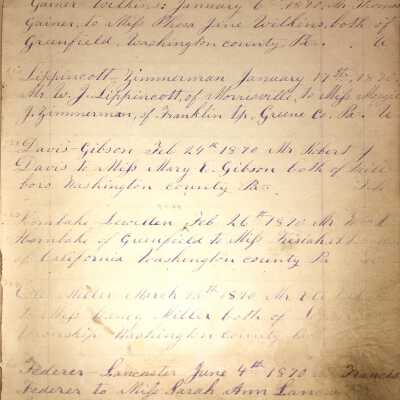 Gainer Wilkins: January 6th 1870, Mr Thomas
Gainer, to Miss Phosa Jine Wilkins, both of
Greenfield, Washington county Pa.
Lippincott-Zimmerman January 17th, 1870,
Mr W. J. Lippincott, of Morrisville, to Miss
J. Zimmerman, of Franklin Tp. Greene Co. Pa.
Davis-Gibson Feb 24th 1870 Mr Robert J
Davis to Miss Mary E. Gibson both of Hill
boro Washington county Pa.
Hornbake Feb 26th 1870 Mr
Hornbake of Greenfield to Miss
of California Washington county Pa
Miller March 1870 Mr
to Miss Nancy Miller both of
township Washington county
Federer-Lancaster June 4th 1870 Francis
Federer to Miss Sarah Ann